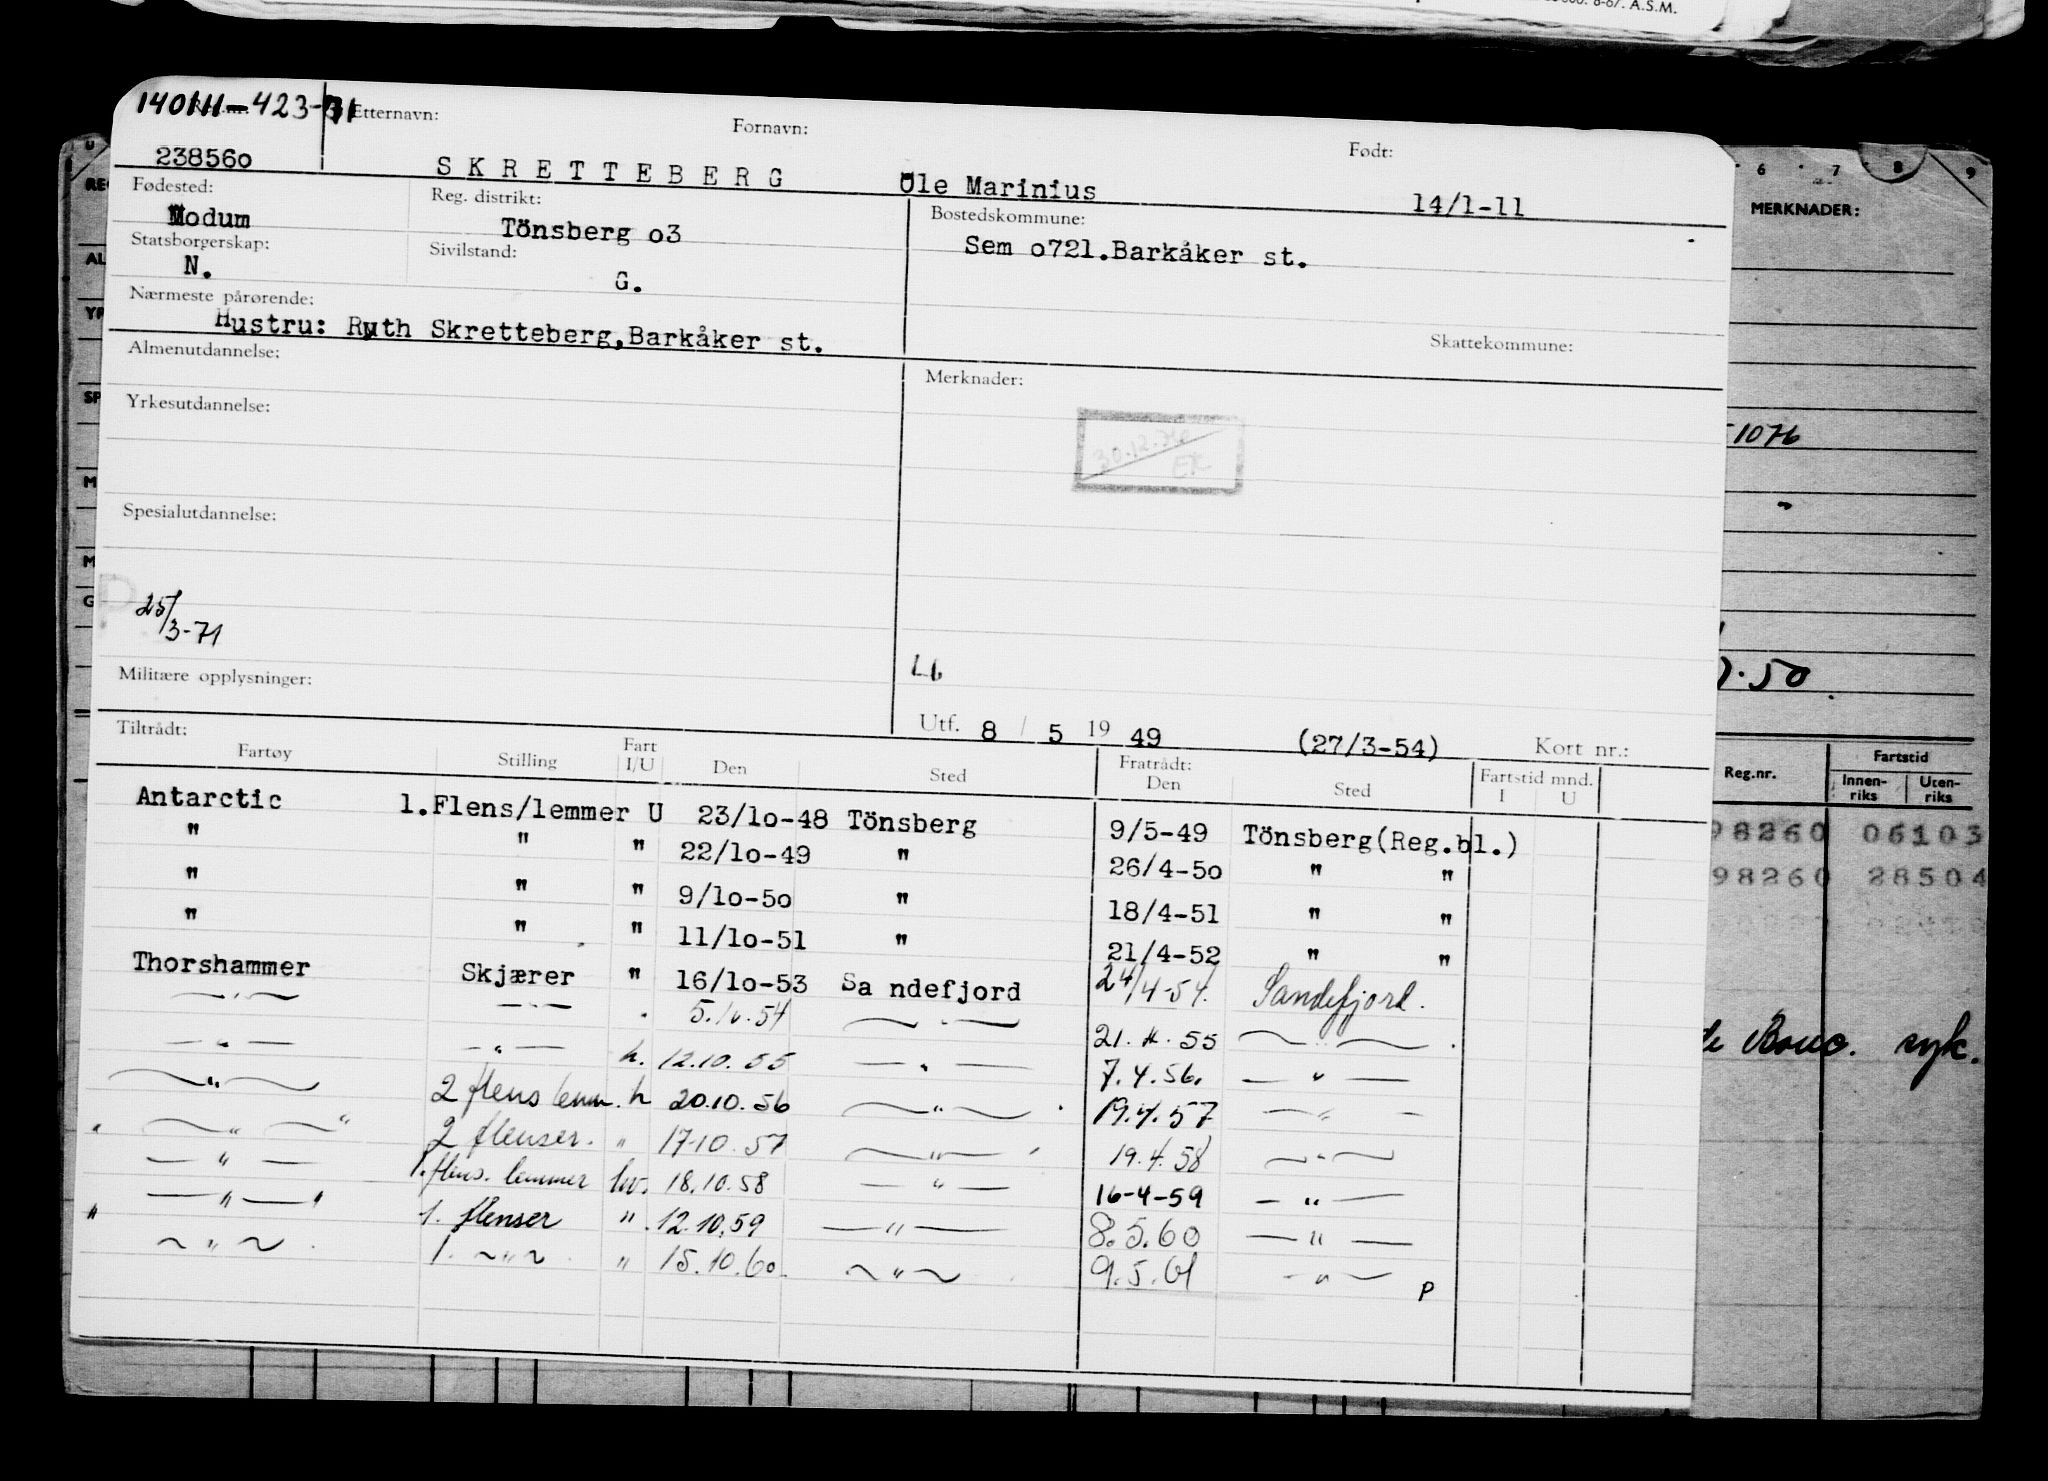 8-67. A.S.M.
140111-423-71 Etternavn: Fornavn: Født:
238560 SKRETTEBERG Ole Marinius 14/1-11
Fødested: Reg. distrikt: Bostedskommune:
Modum Tönsberg o3 Sem o721.Barkåker st.
Statsborgerskap: Sivilstand:
N. G.
Nærmeste pårørende:
Hustru: Ruth Skretteberg,Barkåker st. Skattekommune:
Almenutdannelse: Merknader:
Yrkesutdannelse:
30.12.70
EK
Spesialutdannelse:
25/3-71
Militære opplysninger:
Utf. 8 / 5 19 49 (27/3-54) Kort nr.:
Tiltrådt: Fratrådt: Fartstid mnd.
Fartøy Stilling Fart I/U Den Sted Den Sted I U
Antarctic 1.Flens/lemmer U 23/lo-48 Tönsberg 9/5-49 Tönsberg(Reg.bl.)
" " " 22/lo-49 " 26/4-5o " "
" " " 9/lo-5o " 18/4-51 " "
" " " 11/lo-51 " 21/4-52 " "
Thorshammer Skjærer " 16/lo-53 Sandefjord 24/4-54. Sandefjord.
—"— —"— " 5.10.54 —"— 21.4.55 —"—
—"— —"— u. 12.10.55 —"— 7.4.56. —"—
—"— 2 flens lemm. u 20.10.56 —"— 19.4.57 —"—
" —"— " 2 flenser. " 17-10.57 —"— 19.4.58 —"—
—"— 1. flens. lemmer hv. 18.10.58 —"— 16-4-59 —"—
" —"— " 1. flenser " 12.10.59 —"— 8.5.60 —"—
—"— 1. —"— " 15.10.60 —"— 9.5.61 —"— P
6 7 8 9
MERKNADER:
1076
.50
Reg.nr. Fartstid
Innen-riks Uten-riks
98260 06103
98260 28504
syk.